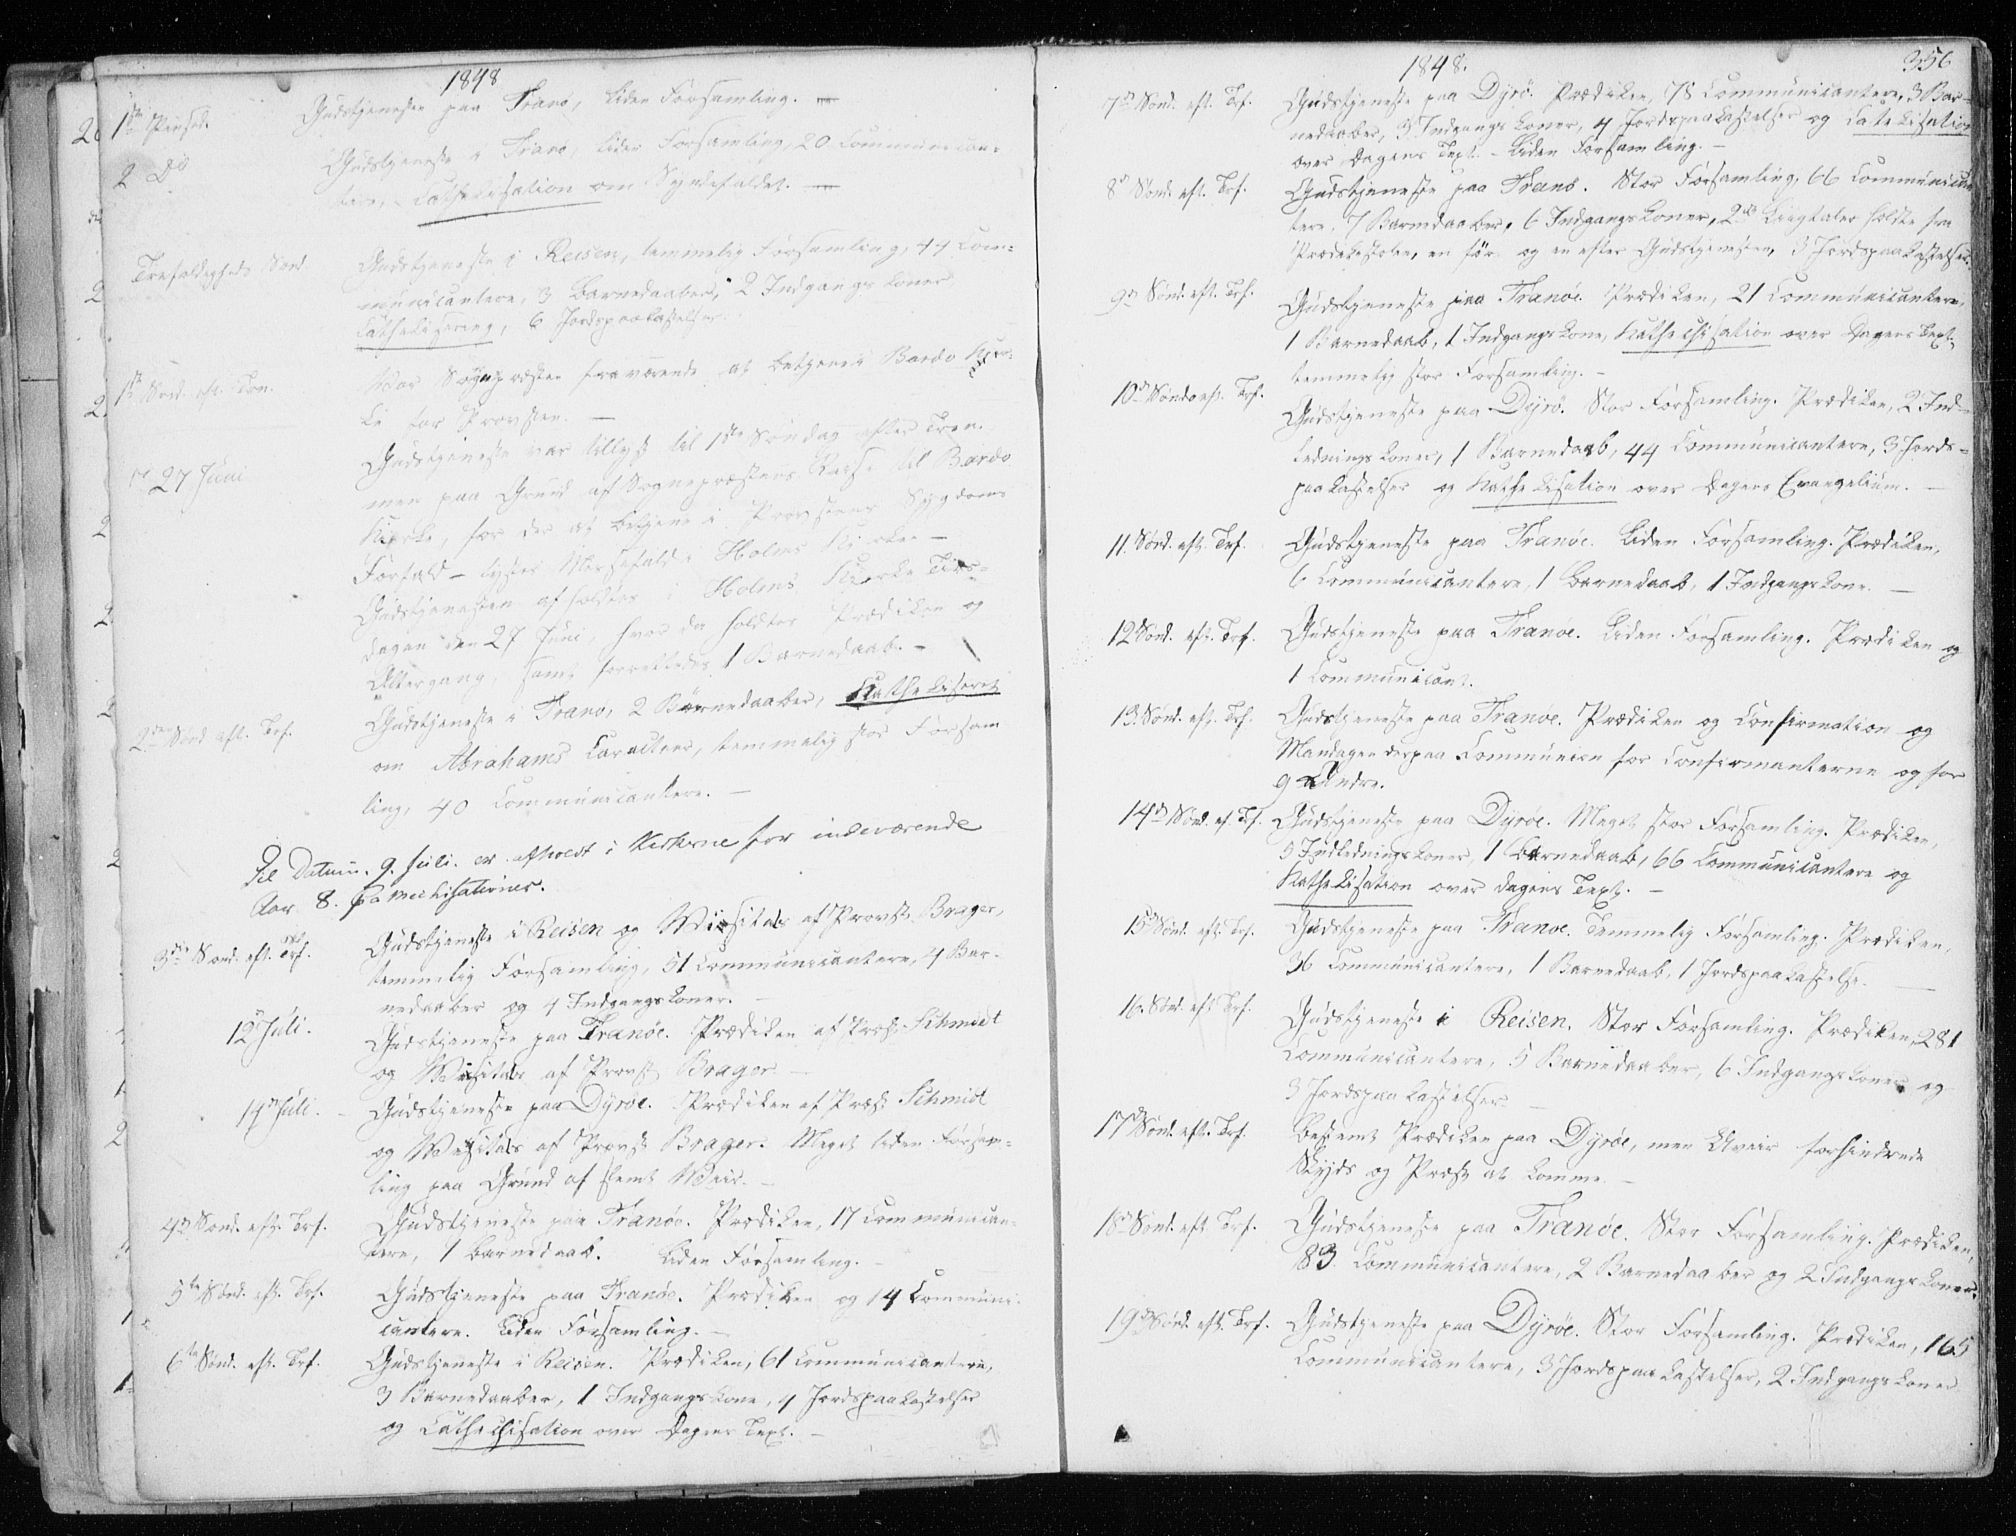 1848
1ste Pintsed. Gudstjeneste paa Tranö, liden Forsamling. —
2 Do Gudstjeneste i Tranö, liden Forsamling, 20 Communican-
tere, Cathekisation om Syndefaldet. —
Trefoldigheds Sönd. Gudstjeneste i Reisen, temmelig Forsamling, 44 Com-
municantere, 3 Barnedaaber, 2 Indgangskoner
Cathekisering, 6 Jordspaakastelser.
1ste Sönd. eft. Tref. War Sognepræsten fraværende at betjene i Bardo Kir-
ke for Provsten. —
Gudstjeneste var tillyst til 1ste Söndag efter Tren.
27 Juni men paa Grund af Sognepræstens Reise til Bardo
Kirke, for der at betjene i Provstens Sygdoms
Forfald — lystes Messefald i Holms Kirke —
Gudstjenesten afholdtes i Holms Kirke Tirs-
dagen den 27 Juni, hvor da holdtes Prædiken og
Altergang, samt forrettedes 1 Barnedaab. —
2den Sönd eft. Trf. Gudstjeneste i Tranö, 2 Barnedaaber, Kathekiseret
om Abrahams Caracteer, temmelig stor Forsam
ling, 40 Communicantere. —
Til Datum 9. Juli. er afholdt i Kirkerne for indeværende
Aar 8. Cathechisationer.
3die Sönd. eft. Trf. Gudstjeneste i Reisen og Wisitats af Provst Brager,
temmelig Forsamling, 51 Communicantere, 4 Bar-
nedaaber og 4 Indgangskoner. —
12 Juli. Gudstjeneste paa Tranöe. Prædiken af Præst Schmidt
og Wisitats af Provst Brager —
14 Juli. — Gudstjeneste paa Dyröe. Prædiken af Præst Schmidt
og Wisitats af Provst Brager. Meget liden Forsam-
ling paa Grund af slemt Weir. —
4de Sönd. eft. Trf. Gudstjeneste paa Tranöe. Prædiken, 17 Communican-
tere, 1 Barnedaab. Liden Forsamling. —
5te Sönd. eft. Trf. Gudstjeneste paa Tranöe. Prædiken og 14 Communi-
cantere. Liden Forsamling. —
6te Sönd. eft. Trf. Gudstjeneste i Reisen. Prædiken, 61 Communicantere,
3 Barnedaaber, 1 Indgangskone, 4 Jordspaakastelser
og Cathechisation over Dagens Text. —
1848. 356
7de Sönd. eft. Trf. Gudstjeneste paa Dyrö. Prædiken, 78 Communicantere, 3 Bar-
nedaaber, 3 Indgangskoner, 4 Jordspaakastelser og Catekisation
over Dagens Text. — Liden Forsamling. —
8de Sönd. eft. Trf. Gudstjeneste paa Tranö. Stor Forsamling, 66 Communican
tere, 7 Barnedaaber, 6 Indgangskoner, 2de Liigtaler holdte fra
Prædikestolen, en för og en efter Gudstjenesten, 3 Jordspaakastelser.
9de Sönd. eft. Trf. Gudstjeneste paa Tranöe. Prædiken, 21 Communicantere,
1 Barnedaab, 1 Indgangskone, Kathechisation over Dagens Text,
temmelig stor Forsamling. —
10de Sönd. eft. Trf. Gudstjeneste paa Dyrö. Stor Forsamling. Prædiken, 2 Ind-
ledningskoner, 1 Barnedaab, 44 Communicantere, 3 Jords-
paakastelser og Kathekisation over Dagens Evangelium. —
11. Sönd. eft. Trf. Gudstjeneste paa Tranöe. Liden Forsamling. Prædiken,
6 Communicantere, 1 Barnedaab, 1 Indgangskone. —
12 Sönd. eft. Trf. Gudstjeneste paa Tranöe. Liden Forsamling. Prædiken og
1 Communicant.
13. Sönd. eft. Trf. Gudstjeneste paa Tranöe. Prædiken og Confirmation og
Mandagen derpaa Communion for Confirmanterne og for
9 Andre.
14de Sönd. ef. Trf. Gudstjeneste paa Dyröe. Meget stor Forsamling. Prædiken,
5 Indledningskoner, 1 Barnedaab, 66 Communicantere og
Kathekisation over Dagens Text. —
15de Sönd. eft. Trf. Gudstjeneste paa Tranöe. Temmelig Forsamling. Prædiken,
36 Communicantere, 1 Barnedaab, 1 Jordspaakastelse. —
16. Sönd. eft Trf. Gudstjeneste i Reisen. Stor Forsamling. Prædiken, 281
Communicantere, 5 Barnedaaber, 6 Indgangskoner og
3 Jordspaakastelser. —
17de Sönd. eft. Trf. Bestemt Prædiken paa Dyröe, men Uveir forhindrede
Skyds og Præst at komme. —
18de Sönd. eft Trf. Gudstjeneste paa Tranöe. Stor Forsamling. Prædiken,
83 Communicantere, 2 Barnedaaber og 2 Indgangskoner.
19de Sönd. eft. Trf. Gudstjeneste paa Dyröe. Stor Forsamling. Prædiken, 165
Communicantere, 3 Jordspaakastelser, 2 Indgangskoner